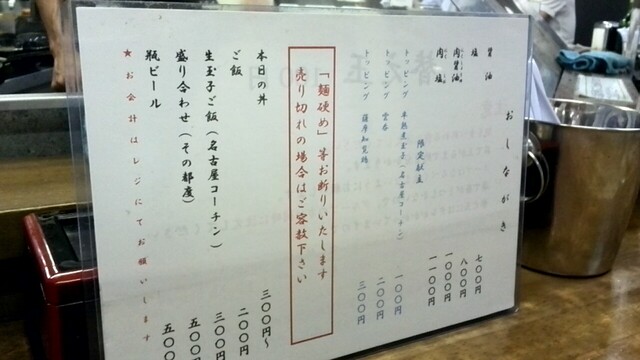 おしながき
醤油 七〇〇円
塩 八〇〇円
肉醤油 一〇〇〇円
肉塩 一一〇〇円
限定献立
トッピング 半熟煮玉子(名古屋コーチン) 一〇〇円
トッピング 雲呑 二〇〇円
トッピング 薩摩知覧鶏 三〇〇円
「麺硬め」等お断りいたします
売り切れの場合はご容赦下さい
本日の丼 三〇〇円~
ご飯 二〇〇円
生玉子ご飯(名古屋コーチン) 三〇〇円
盛り合わせ(その都度) 五〇〇円
瓶ビール 五〇〇
★お会計はレジにてお願いします